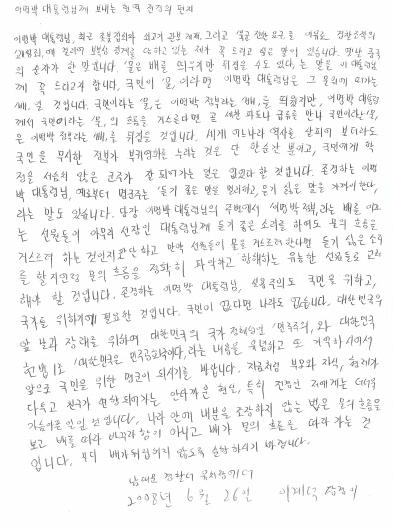 이명박 대통령님께 보내는 현역 전경의 편지
이명박 대통령님, 최근 촛불집회와 쇠고기 관보 게재, 그리고 '일련 진압 요구'를 이유로, 경찰 수뇌의
때 권력의 보복성 경계를 당하고 있는 제가 꼭 드리고 싶은 말이 있습니다. 옛날 중국
의 순자가 한 말입니다. '물은 배를 띄우지만 뒤집을 수도 있다', 는 말을 이 대통령님
께 꼭 드리고자 합니다. 국민이 '물', 이라면 이명박 대통령님은 그 물위에 떠가는
'배', 일 것입니다. 국민이라는 '물', 은 이명박 정부라는 '배', 를 띄웠지만, 이명박 대통령
께서 국민이라는 '물', 의 흐름을 거스른다면 곧 세찬 파도나 급류를 만나 국민이라는 '물',
은 이명박 정부라는 '배', 를 뒤집을 것입니다. 세계 어느나라 역사를 살피어 보더라도
국민을 무시한 정부가 부귀영화를 누리는 것은 단 한순간 뿐이고, 국민에게 학
정을 서슴치 않은 군주가 잘 되어가는 일은 없었다 할 것입니다. 존경하는 이명
박 대통령님, 예로부터 명군주는 '듣기 좋은 말은 멀리하고, 듣기 싫은 말을 가까이 한다',
라는 말도 있습니다. 당장 이명박 대통령님의 주변에서 '이명박 정부', 라는 배를 이끄
는 선원들이 아무리 선장인 대통령님께 듣기 좋은 소리를 하여도 물의 흐름을
거스르려 하는 것인지 판단하고 만약 선원들이 물을 거스르려 한다면 듣기 싫은 소리
를 할지언정 물의 흐름을 정확히 파악하고 항해하는 유능한 선원들로 교체
해야 할 것입니다. 존경하는 이명박 대통령님, 실용주의도 국민을 위하고,
국가를 위하기에 필요한 것입니다. 국민이 없다면 나라도 없습니다. 대한민국의
앞 날과 장래를 위하여 대한민국의 국가 정체성인 '민주주의', 와 대한민국
헌법 1조 '대한민국은 민주공화국이다', 라는 내용을 유념하고 또 기억하시어서
앞으로 국민을 위한 명군이 되시기를 바랍니다. 지금처럼 부모와 자식, 형제가
다투고 친구가 되어가는 안타까운 현실, 특히 전경인 저에게는 더더욱
가슴아픈 일인 것 입니다. 나라 안에 내분을 조장하지 않는 법은 물의 흐름을
보고 배를 따라 바꾸라 함이 아니고 배가 물의 흐름을 따라 가는 것
입니다. 부디 배가 뒤집히지 않도록 순항하시기 바랍니다.
남대문 경찰서
2008년 6월 26일 이계덕